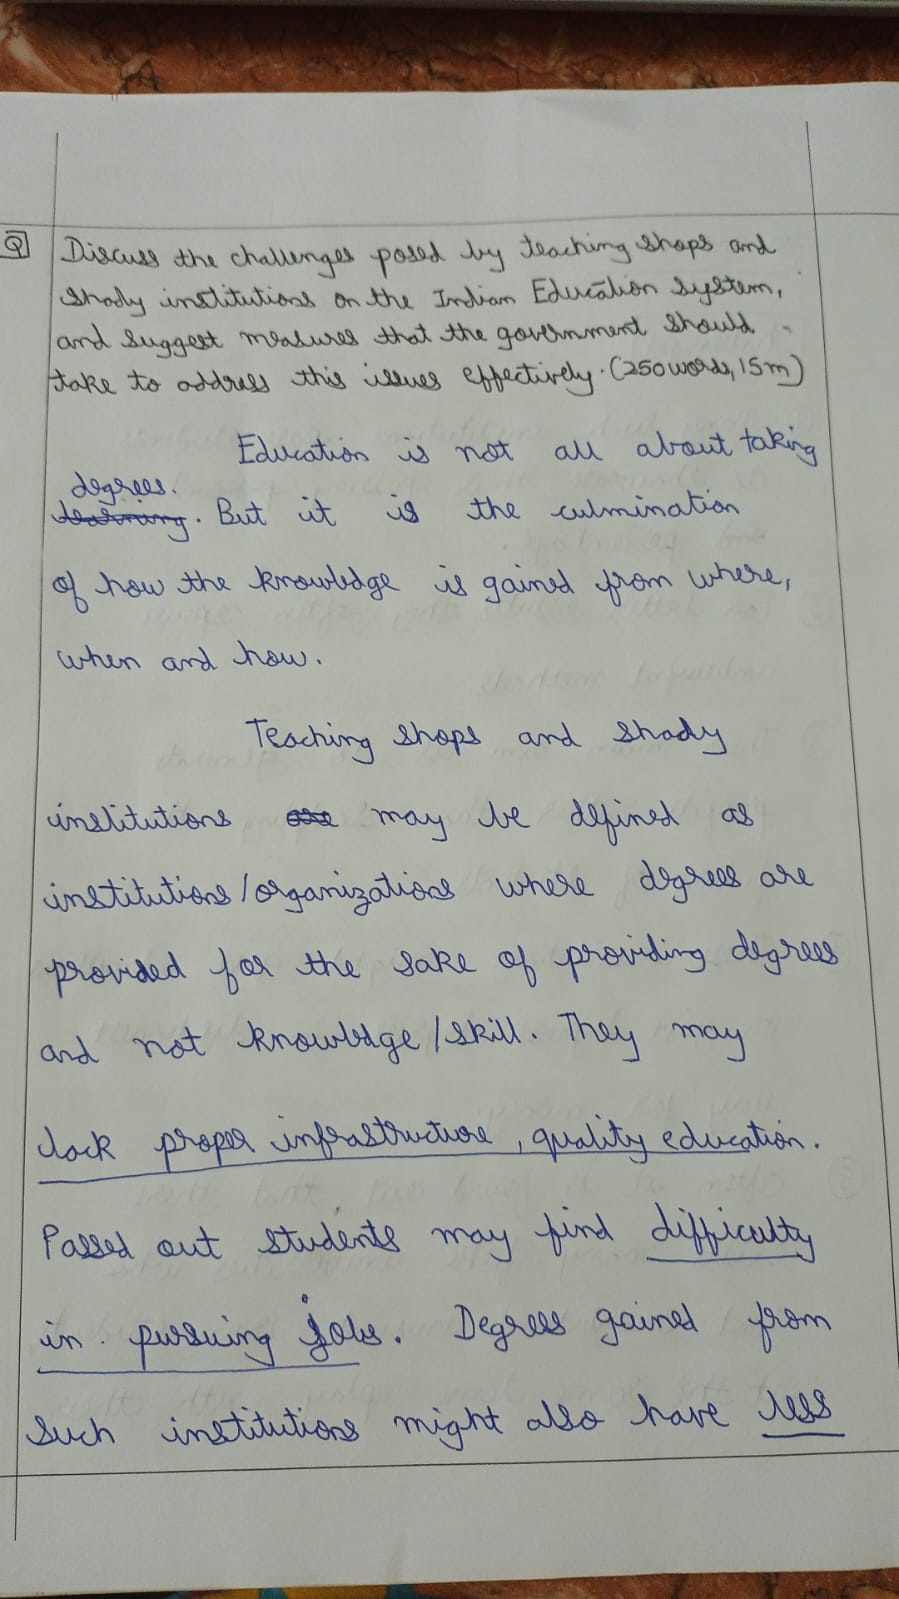 Q Discuss the challenges posed by teaching shops and
shady institutions on the Indian Education System,
and suggest measures that the government should
take to address this issues effectively. (250 words, 15m)
Education is not all about taking
degrees.
learning. But it is the culmination
of how the knowledge is gained from where,
when and how.
Teaching shops and shady
institutions are may be defined as
institutions/organizations where degrees are
provided for the sake of providing degrees
and not knowledge/skill. They may
lack proper infrastructure, quality education.
Passed out students may find difficulty
in pursuing jobs. Degrees gained from
such institutions might also have less